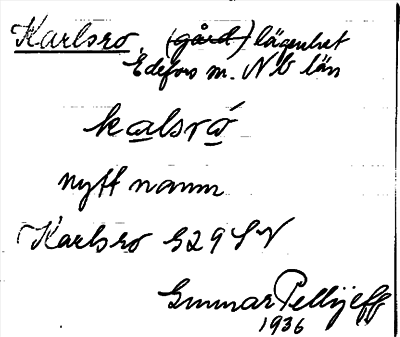 Karlsro, (gård) lägenhet
Edefors sn. Nb län
kalsró
nytt namn
Karlsro S29SV
Gunnar Pellijeff
1936